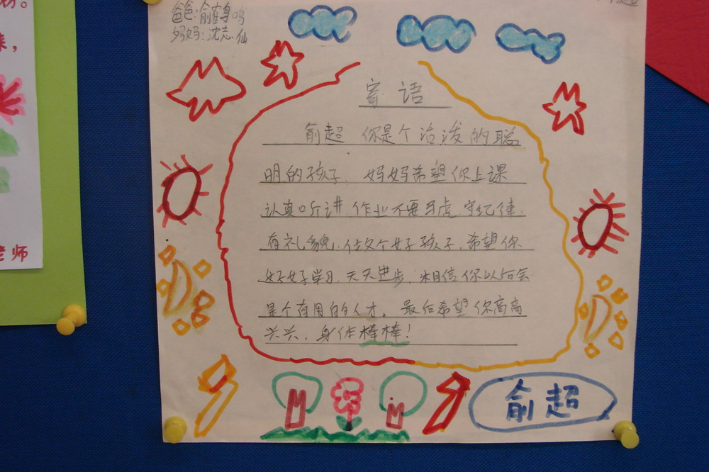 。
爸爸:俞
妈妈:沈志仙
寄语
俞超 你是个活泼的聪
明的孩子。妈妈希望你上课
认真听讲 作业不要马虎 守纪律,
有礼貌,做个好孩子。希望你
好好学习,天天进步,相信你以后会
是个有用的人才。最后希望你高高
兴兴,身体棒棒!
老师
俞超